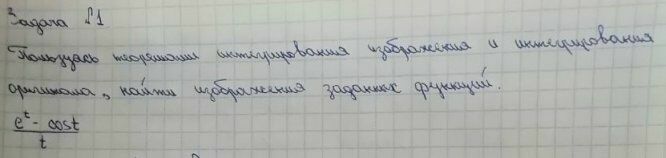 Задача №1
Пользуясь теоремами интегрирования изображения и интегрирования
оригинала, найти изображения заданных функций.
e^t - cost
t